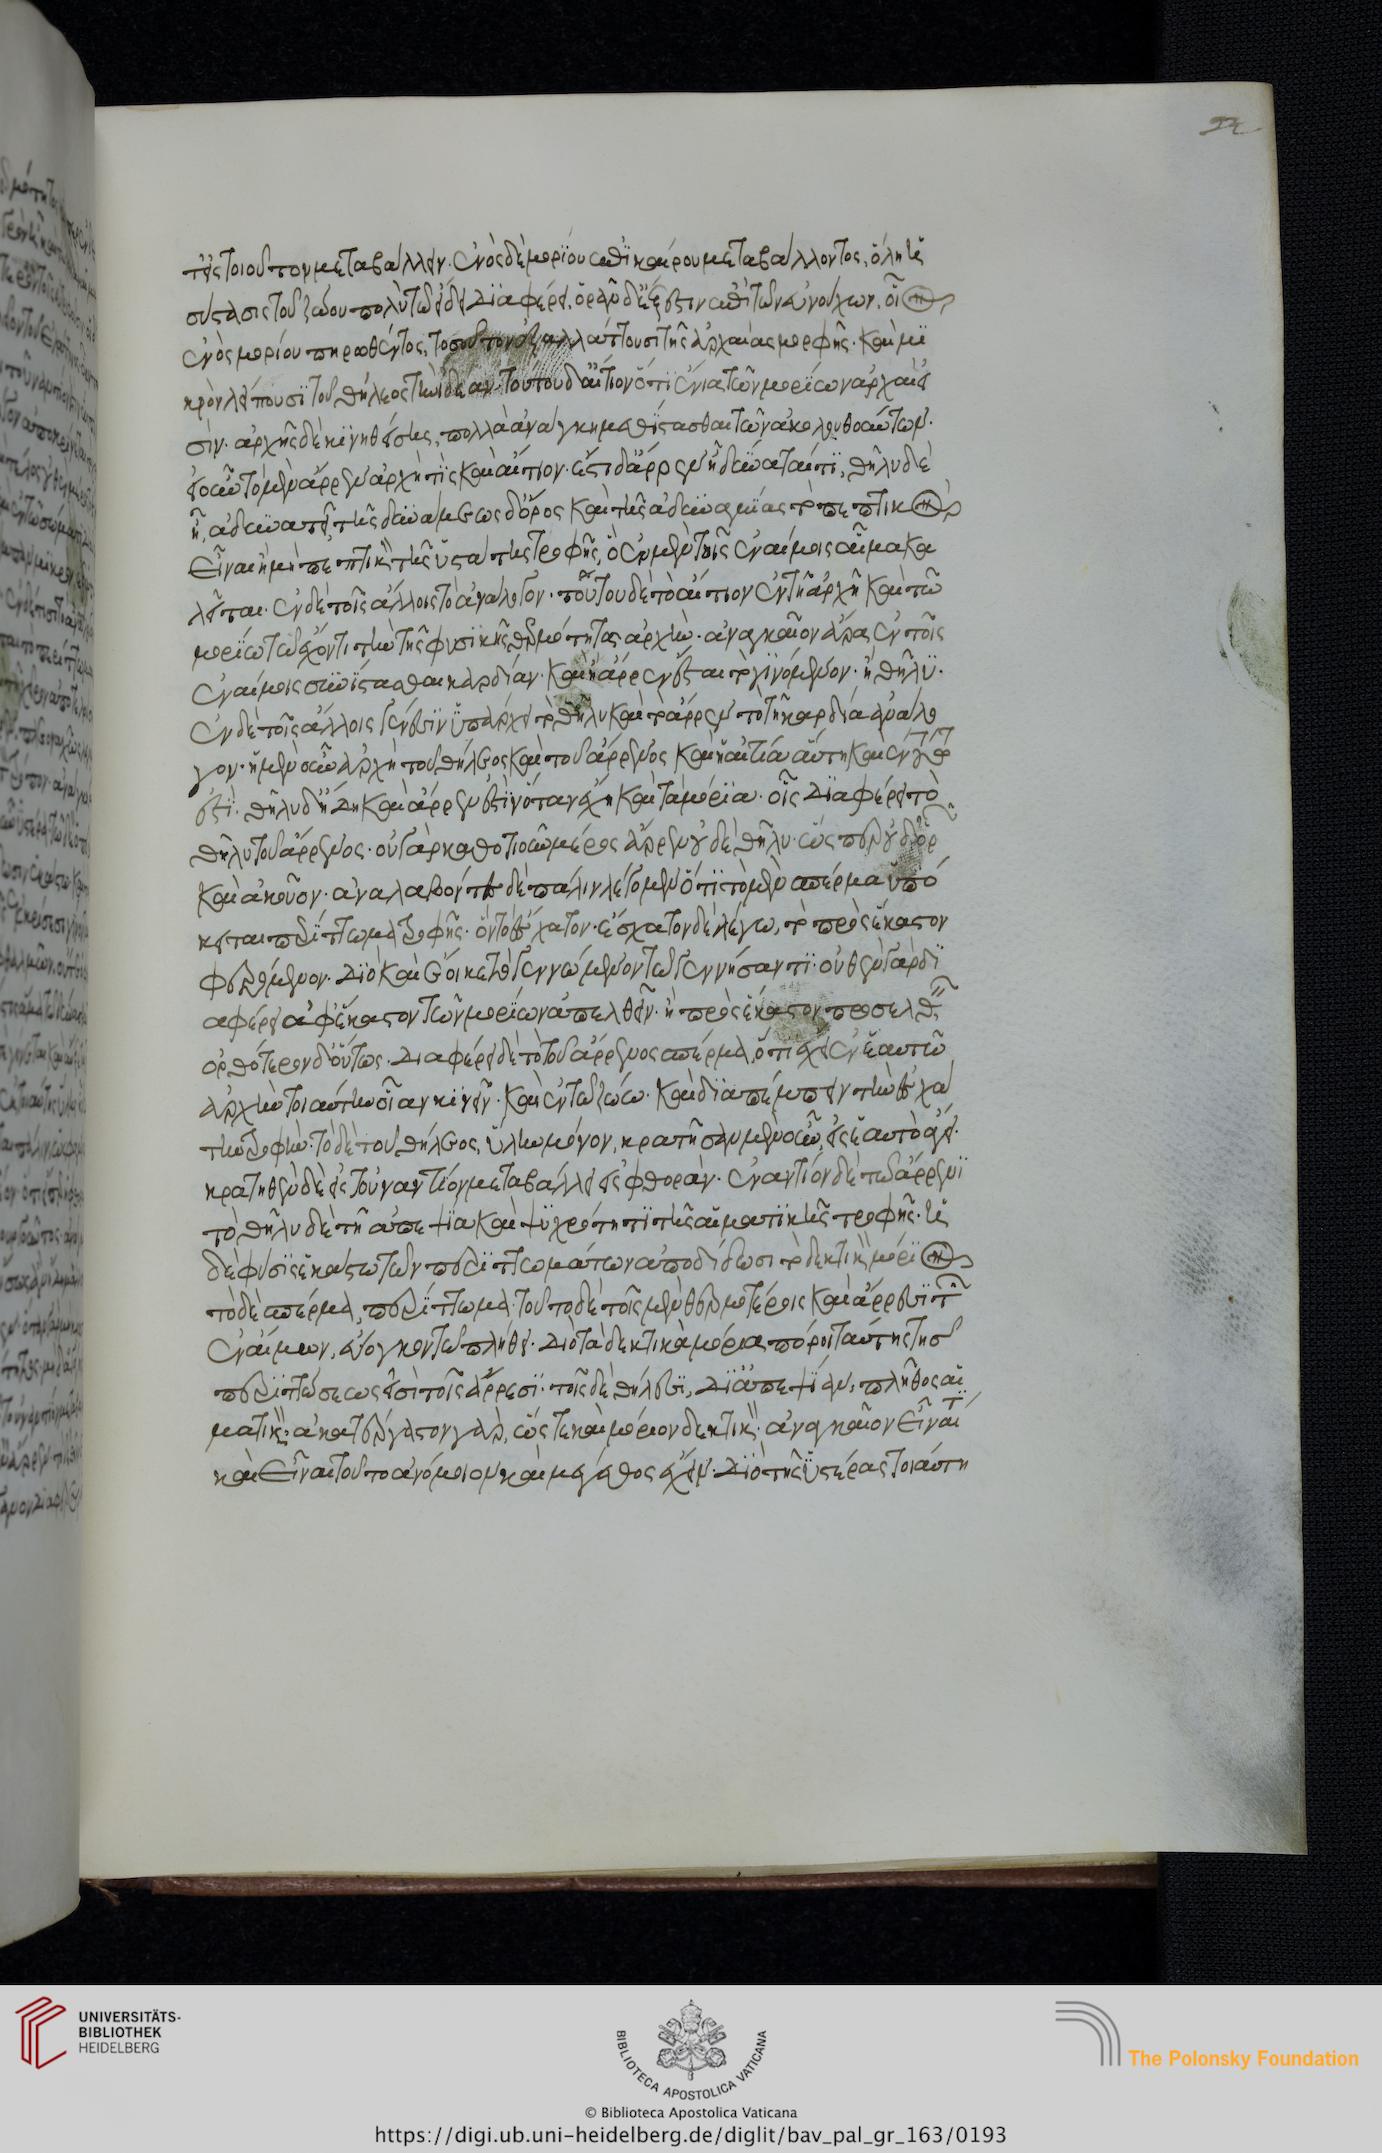 τείς τοιοῦτον μεταβάλλειν. ἑνὸς δὲ μορίου ἐπικαίρου μεταβάλλοντος, ὅλη ἡ
σύστασις τοῦ ζώου πολὺ τῷ εἴδει διαφέρει. ὁρᾶν δὲ ἔξεστιν ἐπὶ τῶν εὐνούχων. οἳ
ἑνὸς μορίου πηρωθέντος, τοσοῦτον ἐξαλλάττουσι τῆς ἀρχαίας μορφῆς. καὶ μι
κρὸν λείπουσι τοῦ θήλεος τὴν ἰδέαν. τούτου δ' αἴτιον ὅτι ἔνια τῶν μορίων ἀρχαί εἰ
σίν. ἀρχῆς δὲ κινηθείσης, πολλὰ ἀνάγκη μεθίστασθαι τῶν ἀκολουθούντων.
εἰ οὖν τὸ μὲν ἄρρεν ἀρχή τις καὶ αἴτιον. ἔστι δ' ἄρρεν ᾗ δύναταί τι, θῆλυ δὲ
ᾗ ἀδυνατεῖ, τῆς δυνάμεως δ' ὅρος καὶ τῆς ἀδυναμίας τὸ πεπτικὸν
εἶναι ἢ μὴ πεπτικὸν τῆς ὑστάτης τροφῆς, ὃ ἐν μὲν τοῖς ἐναίμοις αἷμα κα
λεῖται. ἐν δὲ τοῖς ἄλλοις τὸ ἀνάλογον. τούτου δὲ τὸ αἴτιον ἐν τῇ ἀρχῇ καὶ τῷ
μορίῳ τῷ ἔχοντι τὴν τῆς φυσικῆς θερμότητος ἀρχήν. ἀναγκαῖον ἄρα ἐν τοῖς
ἐναίμοις συνίστασθαι καρδίαν. καὶ ἢ ἄρρεν ἔσται τὸ γινόμενον. ἢ θῆλυ.
ἐν δὲ τοῖς ἄλλοις γένεσιν ὑπάρχει τὸ θῆλυ καὶ τὸ ἄρρεν τὸ τῇ καρδίᾳ ἀνάλο
γον. ἡ μὲν οὖν ἀρχὴ τοῦ θήλεος καὶ τοῦ ἄρρενος καὶ ἡ αἰτία αὕτη καὶ ἐν τούτῳ
ἐστί. θῆλυ δ' ἤδη καὶ ἄρρεν ἐστὶν ὅταν ἔχῃ καὶ τὰ μόρια. οἷς διαφέρει τὸ
θῆλυ τοῦ ἄρρενος. οὐ γὰρ καθ' ὁτιοῦν μέρος ἄρρεν οὐδὲ θῆλυ. ὥσπερ οὐδ' ὁρῶν
καὶ ἀκοῦον. ἀναλαβόντες δὲ πάλιν λέγομεν ὅτι τὸ μὲν σπέρμα ὑπό
κειται περίττωμα τροφῆς. ὂν τὸ ἔσχατον. ἔσχατον δὲ λέγω, τὸ πρὸς ἕκαστον
φερόμενον. διὸ καὶ ἔοικε τὸ γεννώμενον τῷ γεννήσαντι. οὐθὲν γὰρ δι
αφέρει ἀφ' ἕκαστον τῶν μορίων ἀπελθεῖν. ἢ πρὸς ἕκαστον προσελθεῖν
ὀρθότερον δ' οὕτως. διαφέρει δὲ τὸ τοῦ ἄρρενος σπέρμα, ὅτι ἔχει ἐν ἑαυτῷ
ἀρχὴν τοιαύτην οἵαν κινεῖν. καὶ ἐν τῷ ζώῳ. καὶ διαπέμπειν τὴν ἐσχά
την τροφήν. τὸ δὲ τοῦ θήλεος, ὕλην μόνον, κρατῆσαν μὲν οὖν, εἰς ἑαυτὸ ἄγει.
κρατηθὲν δὲ εἰς τοὐναντίον μεταβάλλει εἰς φθοράν. ἐναντίον δὲ τῷ ἄρρενι
τὸ θῆλυ δὲ τῇ ἀπεψίᾳ καὶ ψυχρότητι τῆς αἱματικῆς τροφῆς. ἡ
δὲ φύσις ἑκάστῳ τῶν περιττωμάτων ἀποδίδωσι τὸ δεκτικὸν μόριον
τὸ δὲ σπέρμα, περίττωμα. τοῦτο δὲ τοῖς μὲν θερμοτέροις καὶ ἄρρεσι τῶν
ἐναίμων, εὔογκον τῷ πλήθει. διὸ τὰ δεκτικὰ μόρια πόροι ταύτης τῆς
περιττώσεως εἰσὶ τοῖς ἄρρεσι. τοῖς δὲ θήλεσι, δι' ἀπεψίαν, πλῆθος αἱ
ματικόν. ἀκατέργαστον γάρ, ὥστε καὶ μόριον δεκτικόν. ἀναγκαῖον εἶναί τι
καὶ εἶναι τοῦτο ἀνόμοιον καὶ μέγεθος ἔχειν. διὸ τῆς ὑστέρας τοιαύτη
UNIVERSITÄTS-
BIBLIOTHEK
HEIDELBERG
BIBLIOTECA APOSTOLICA VATICANA
The Polonsky Foundation
© Biblioteca Apostolica Vaticana
https://digi.ub.uni-heidelberg.de/diglit/bav_pal_gr_163/0193